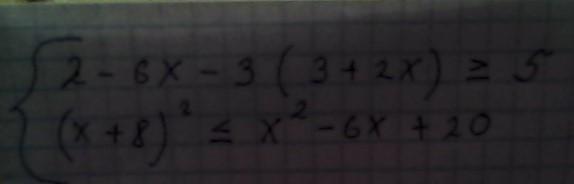 2 - 6x - 3 ( 3 + 2x ) ≥ 5
(x + 8)² ≤ x² - 6x + 20